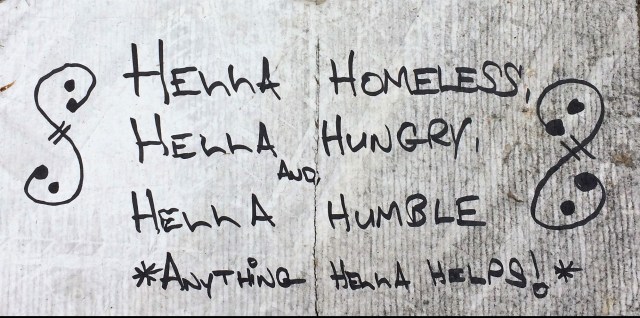 HELLA HOMELESS,
HELLA HUNGRY,
AND,
HELLA HUMBLE
*ANYTHING HELLA HELPS!*